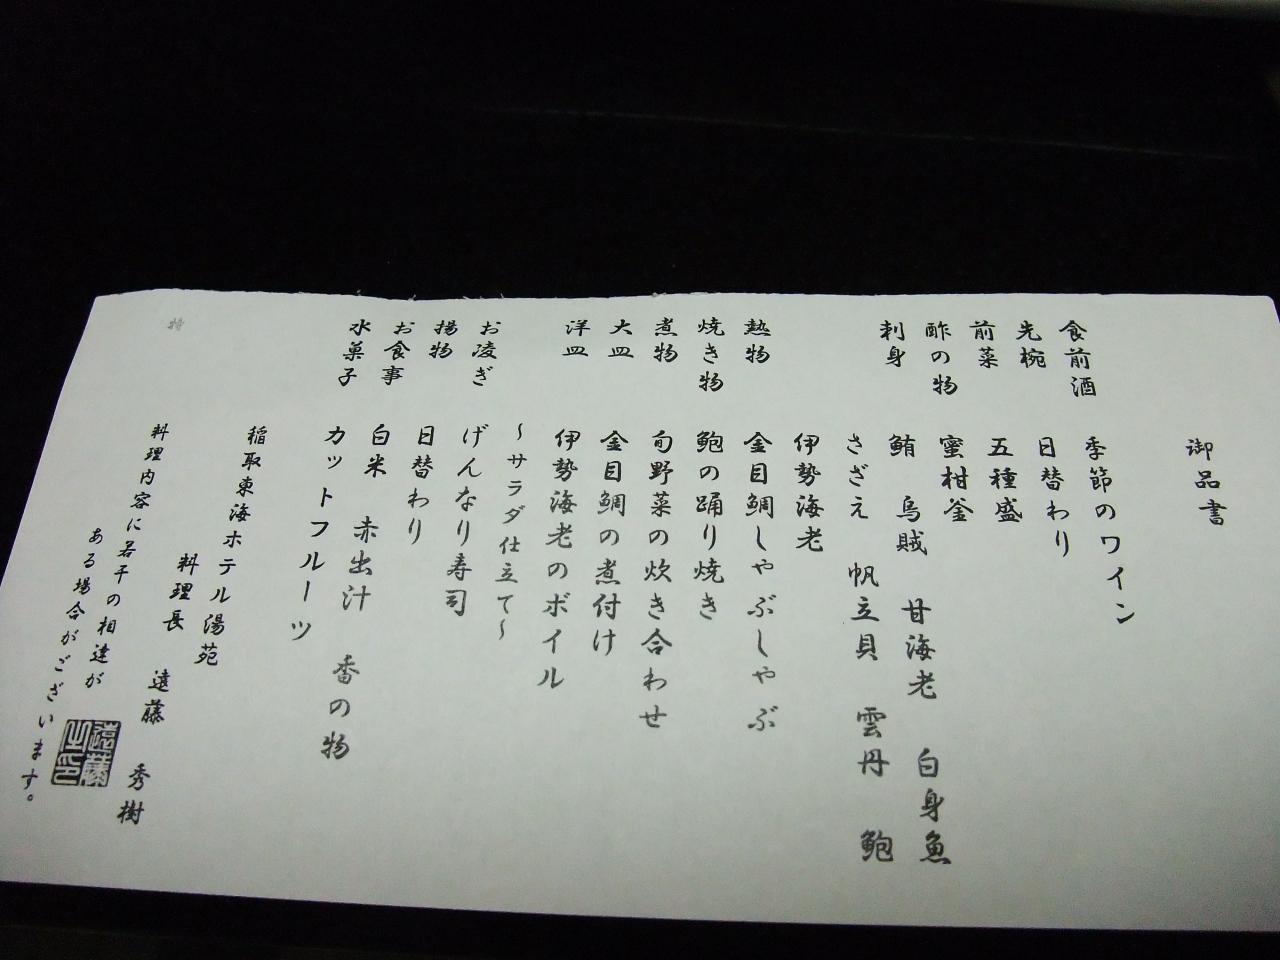 御品書
食前酒 季節のワイン
先椀 日替わり
前菜 五種盛
酢の物 蜜柑釜
刺身 鮪 烏賊 甘海老 白身魚
さざえ 帆立貝 雲丹 鮑
伊勢海老
熱物 金目鯛しゃぶしゃぶ
焼き物 鮑の踊り焼き
煮物 旬野菜の炊き合わせ
大皿 金目鯛の煮付け
洋皿 伊勢海老のボイル
～サラダ仕立て～
お凌ぎ げんなり寿司
揚物 日替わり
お食事 白米 赤出汁 香の物
水菓子 カットフルーツ
稲取東海ホテル湯苑
料理長 遠藤 秀樹
料理内容に若干の相違が
ある場合がございます。
特
遠藤之印